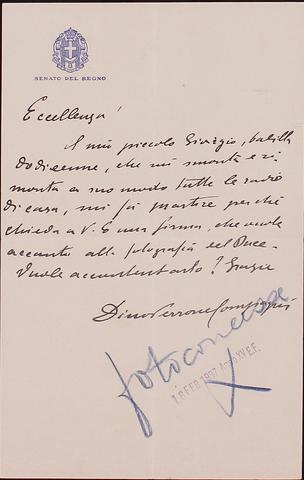 SENATO DEL REGNO
Eccellenza!
Il mio piccolo Giorgio, balilla
dodicenne, che mi smonta e ri
monta a suo modo tutte le radio
di casa, mi fa martire perchè
chieda a V. E. una firma, che vuole
accanto alla fotografia del Duce.
Vuole accontentarlo? Grazie
Dino Perrone Compagni
fotoconcessa
18 FEB 1937 Anno XV E.F.